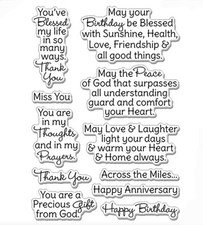 You've
Blessed
my life
in so
many
ways.
Thank
You
May your
Birthday be Blessed
with Sunshine, Health,
Love, Friendship &
all good things.
May the Peace
of God that surpasses
all understanding
guard and comfort
your Heart.
Miss You
You are
in my
Thoughts
and in my
Prayers.
May Love & Laughter
light your days
& warm your Heart
& Home always.
Thank You
Across the Miles...
Happy Anniversary
You are a
Precious Gift
from God.
Happy Birthday